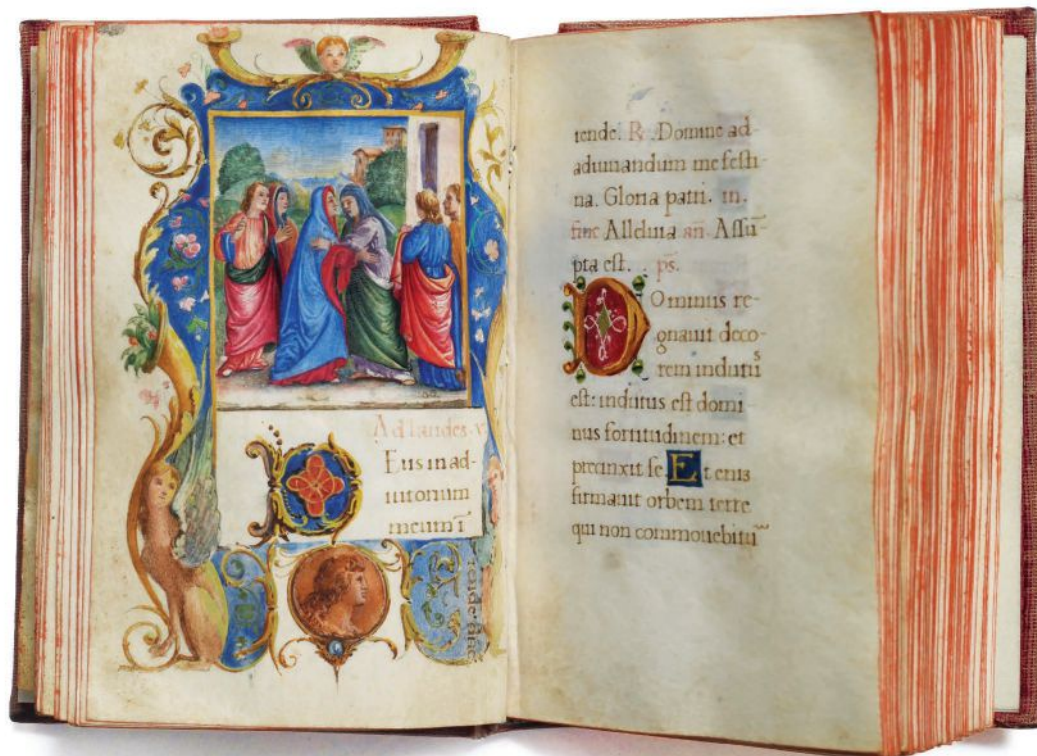 Ad laudes. v
Eus in ad-
iutorium
meum ī
tende. R Domine ad
adiuuandum me festi-
na. Gloria patri. in.
fine Alleluia an̄. Assū-
pta est. . ps̄.
DOminus re-
gnauit deco-
rem indutus
est: indutus est domi
nus fortitudinem: et
precinxit se. Et enim
firmauit orbem terre
qui non commouebitur